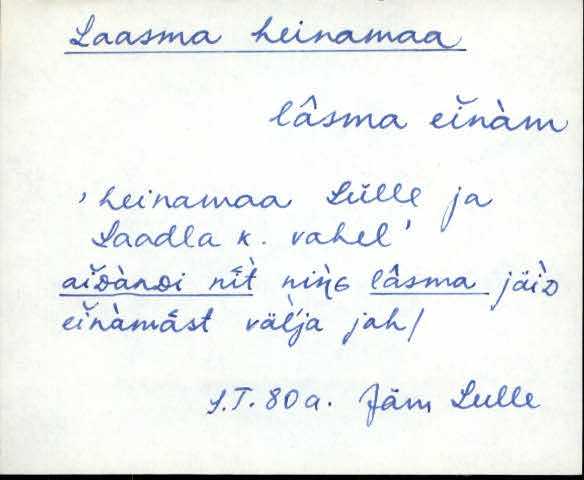 Laasma heinamaa
lâsma eĭnàm
'heinamaa Lülle ja
Laadla k. vahel'
aĭᴅànᴅi nīt̀ niŋ̀ɢ lâsma jäìᴅ
eĭnàmāst väl̀ja jah/
S.T. 80a. Jäm Lülle